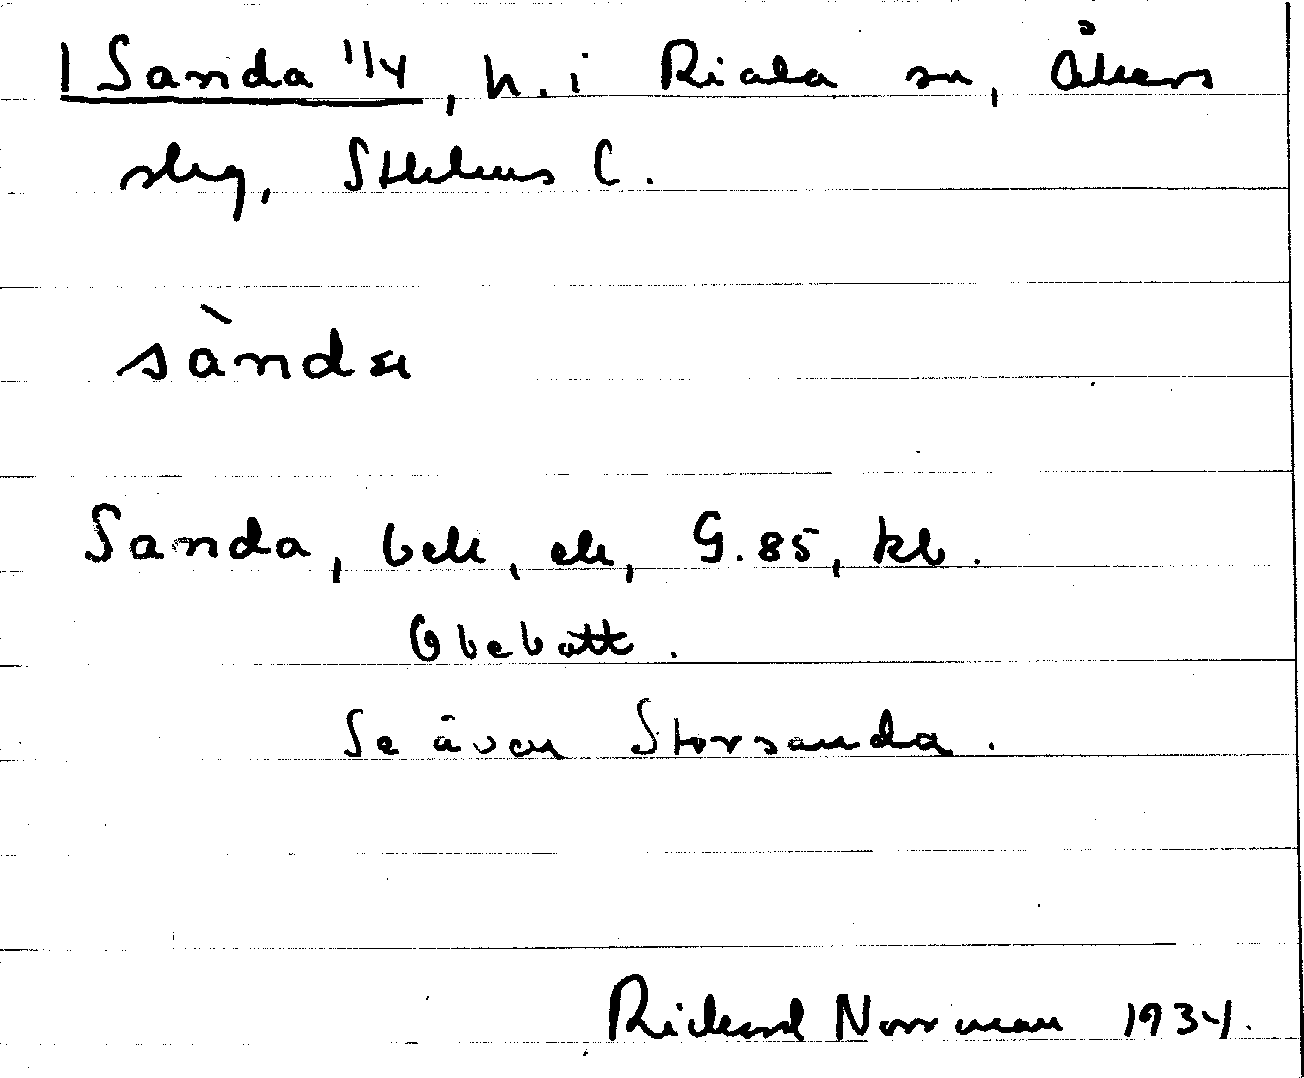 1 Sanda 1/4, h. i Riala sn, Åkers
skg, Sthlms l.
sànda
Sanda, bek, ek, G. 85, kb.
Obebott.
Se även Storsanda.
Rickard Norrman 1934.